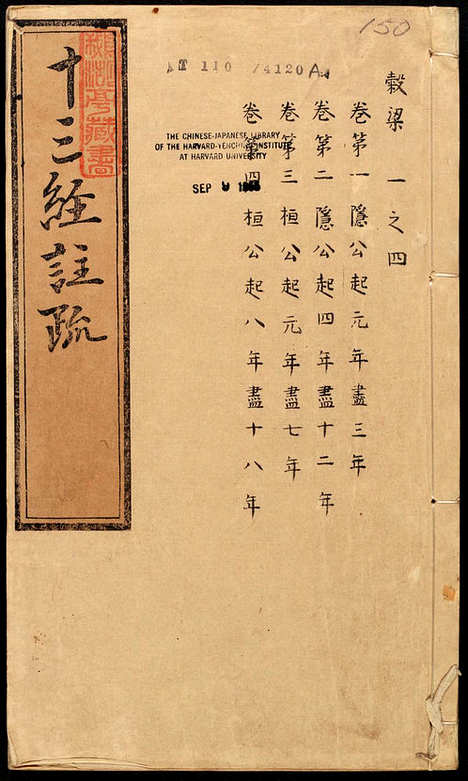 穀梁 一之四
卷第一隱公起元年盡三年
卷第二隱公起四年盡十二年
卷第三桓公起元年盡七年
卷第四桓公起八年盡十八年
十三經註疏
150
T 110 /4120 A
THE CHINESE-JAPANESE LIBRARY
OF THE HARVARD-YENCHING INSTITUTE
AT HARVARD UNIVERSITY
SEP 9